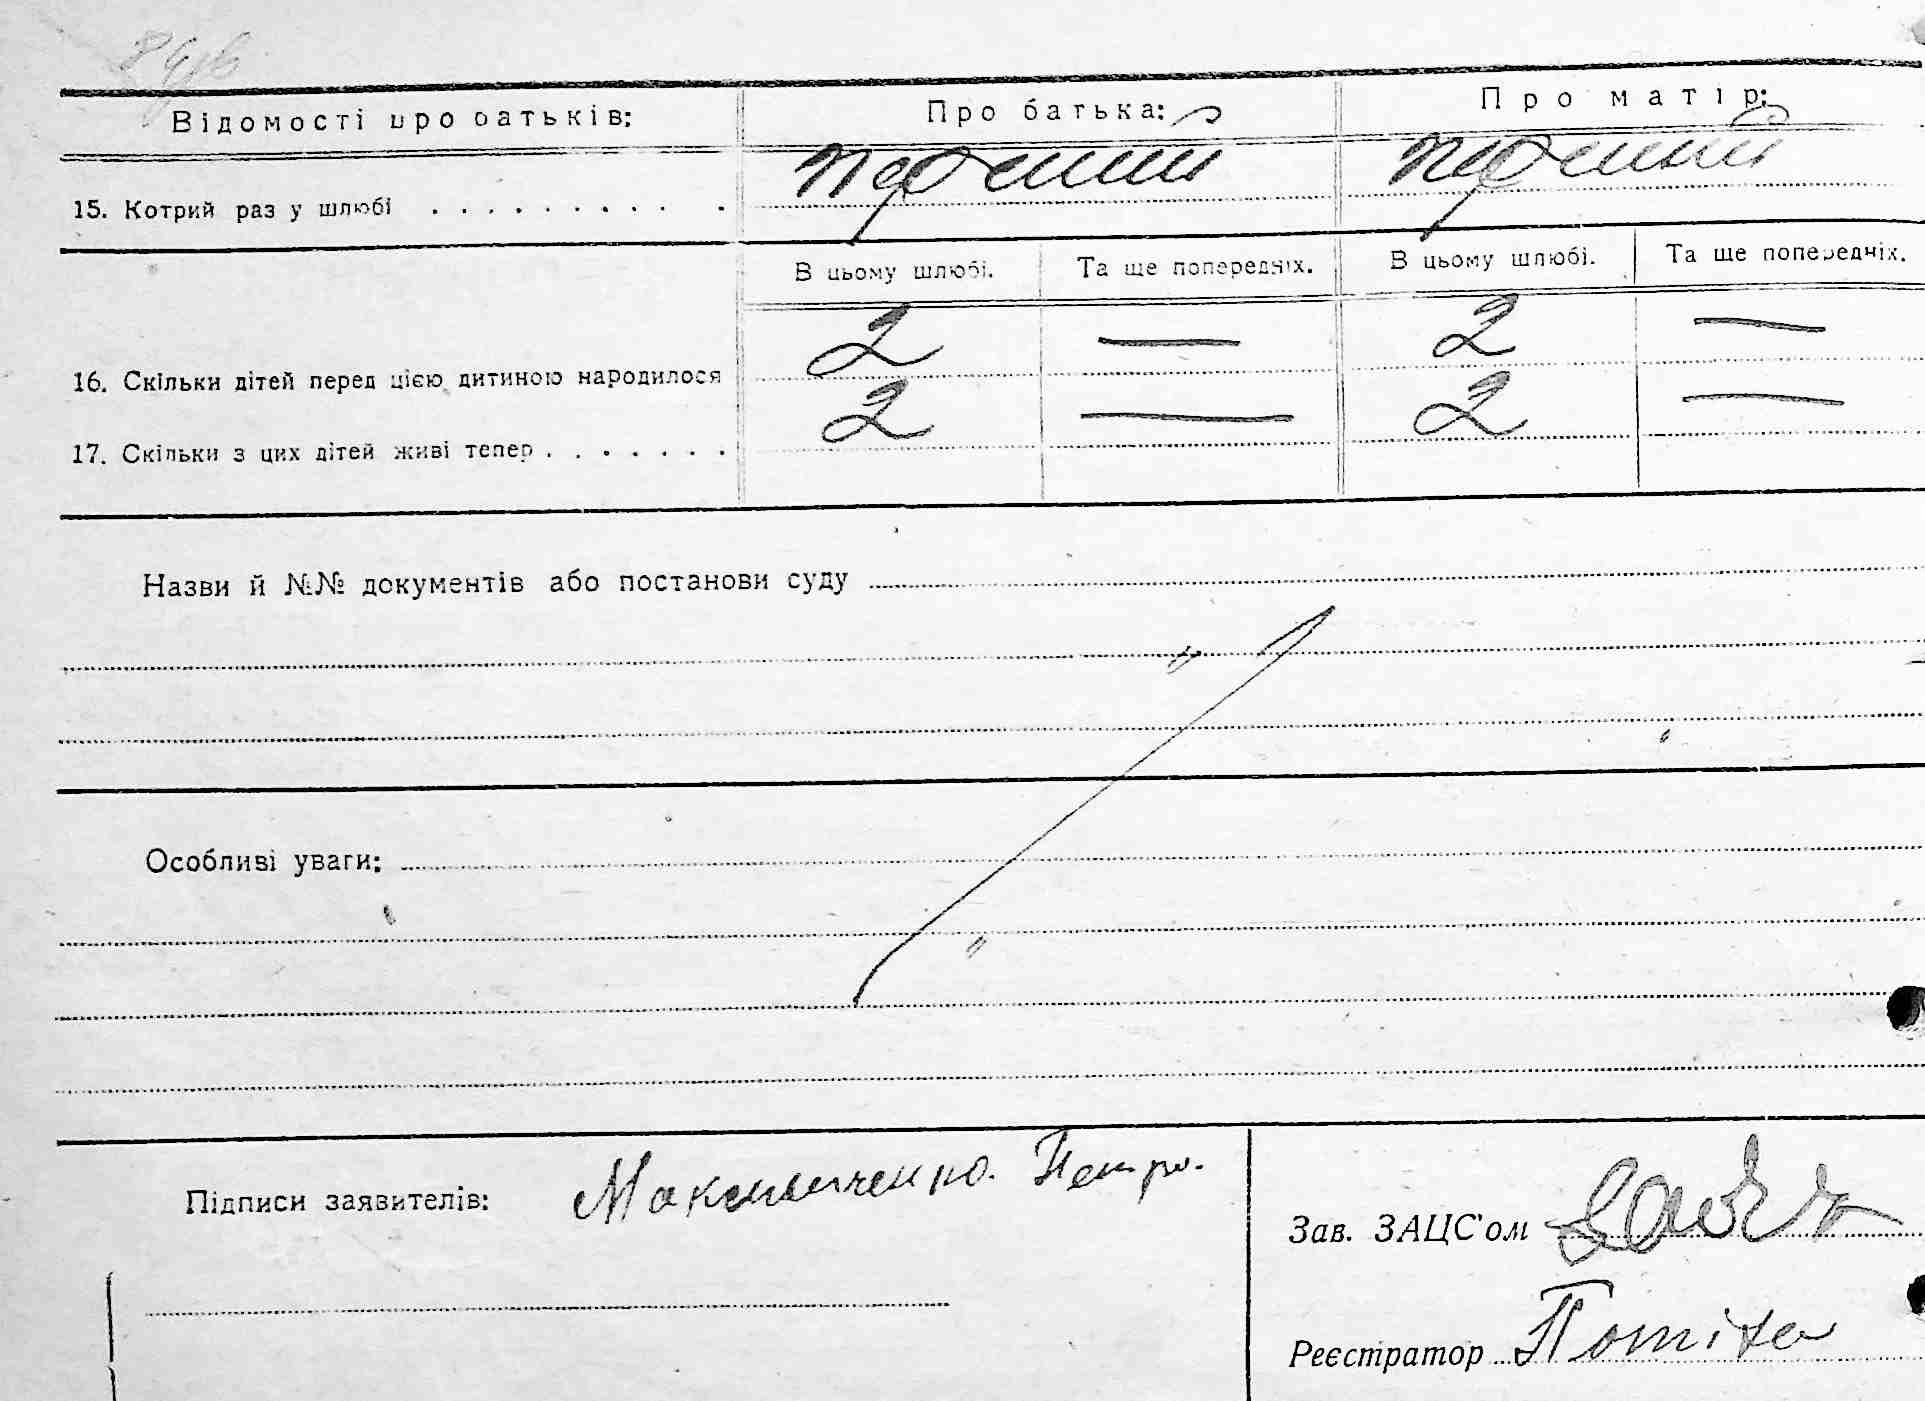 Відомості про батьків: Про батька: Про матір:
15. Котрий раз у шлюбі . . . . . . . . . . перший перший
В цьому шлюбі. Та ще попередніх. В цьому шлюбі. Та ще попередніх.
16. Скільки дітей перед цією дитиною народилося 2 — 2 —
17. Скільки з цих дітей живі тепер . . . . . . . 2 — 2 —
Назви й №№ документів або постанови суду
Особливі уваги:
Підписи заявителів: Максимченко. Петро.
Зав. ЗАЦС'ом
Реєстратор